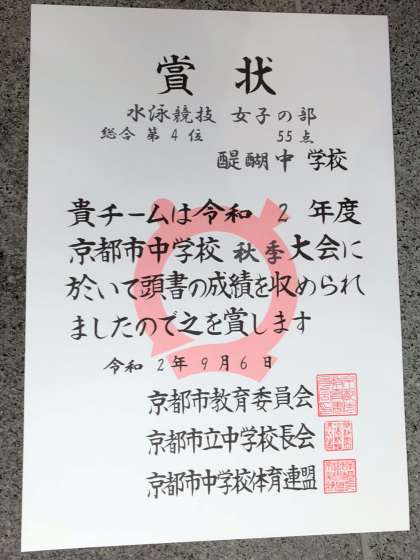 賞状
水泳競技 女子の部
総合 第 4 位 55点
醍醐中 学校
貴チームは令和 2 年度
京都市中学校 秋季大会に
於いて頭書の成績を収められ
ましたので之を賞します
令和 2年 9月 6日
京都市教育委員会
京都市立中学校長会
京都市中学校体育連盟